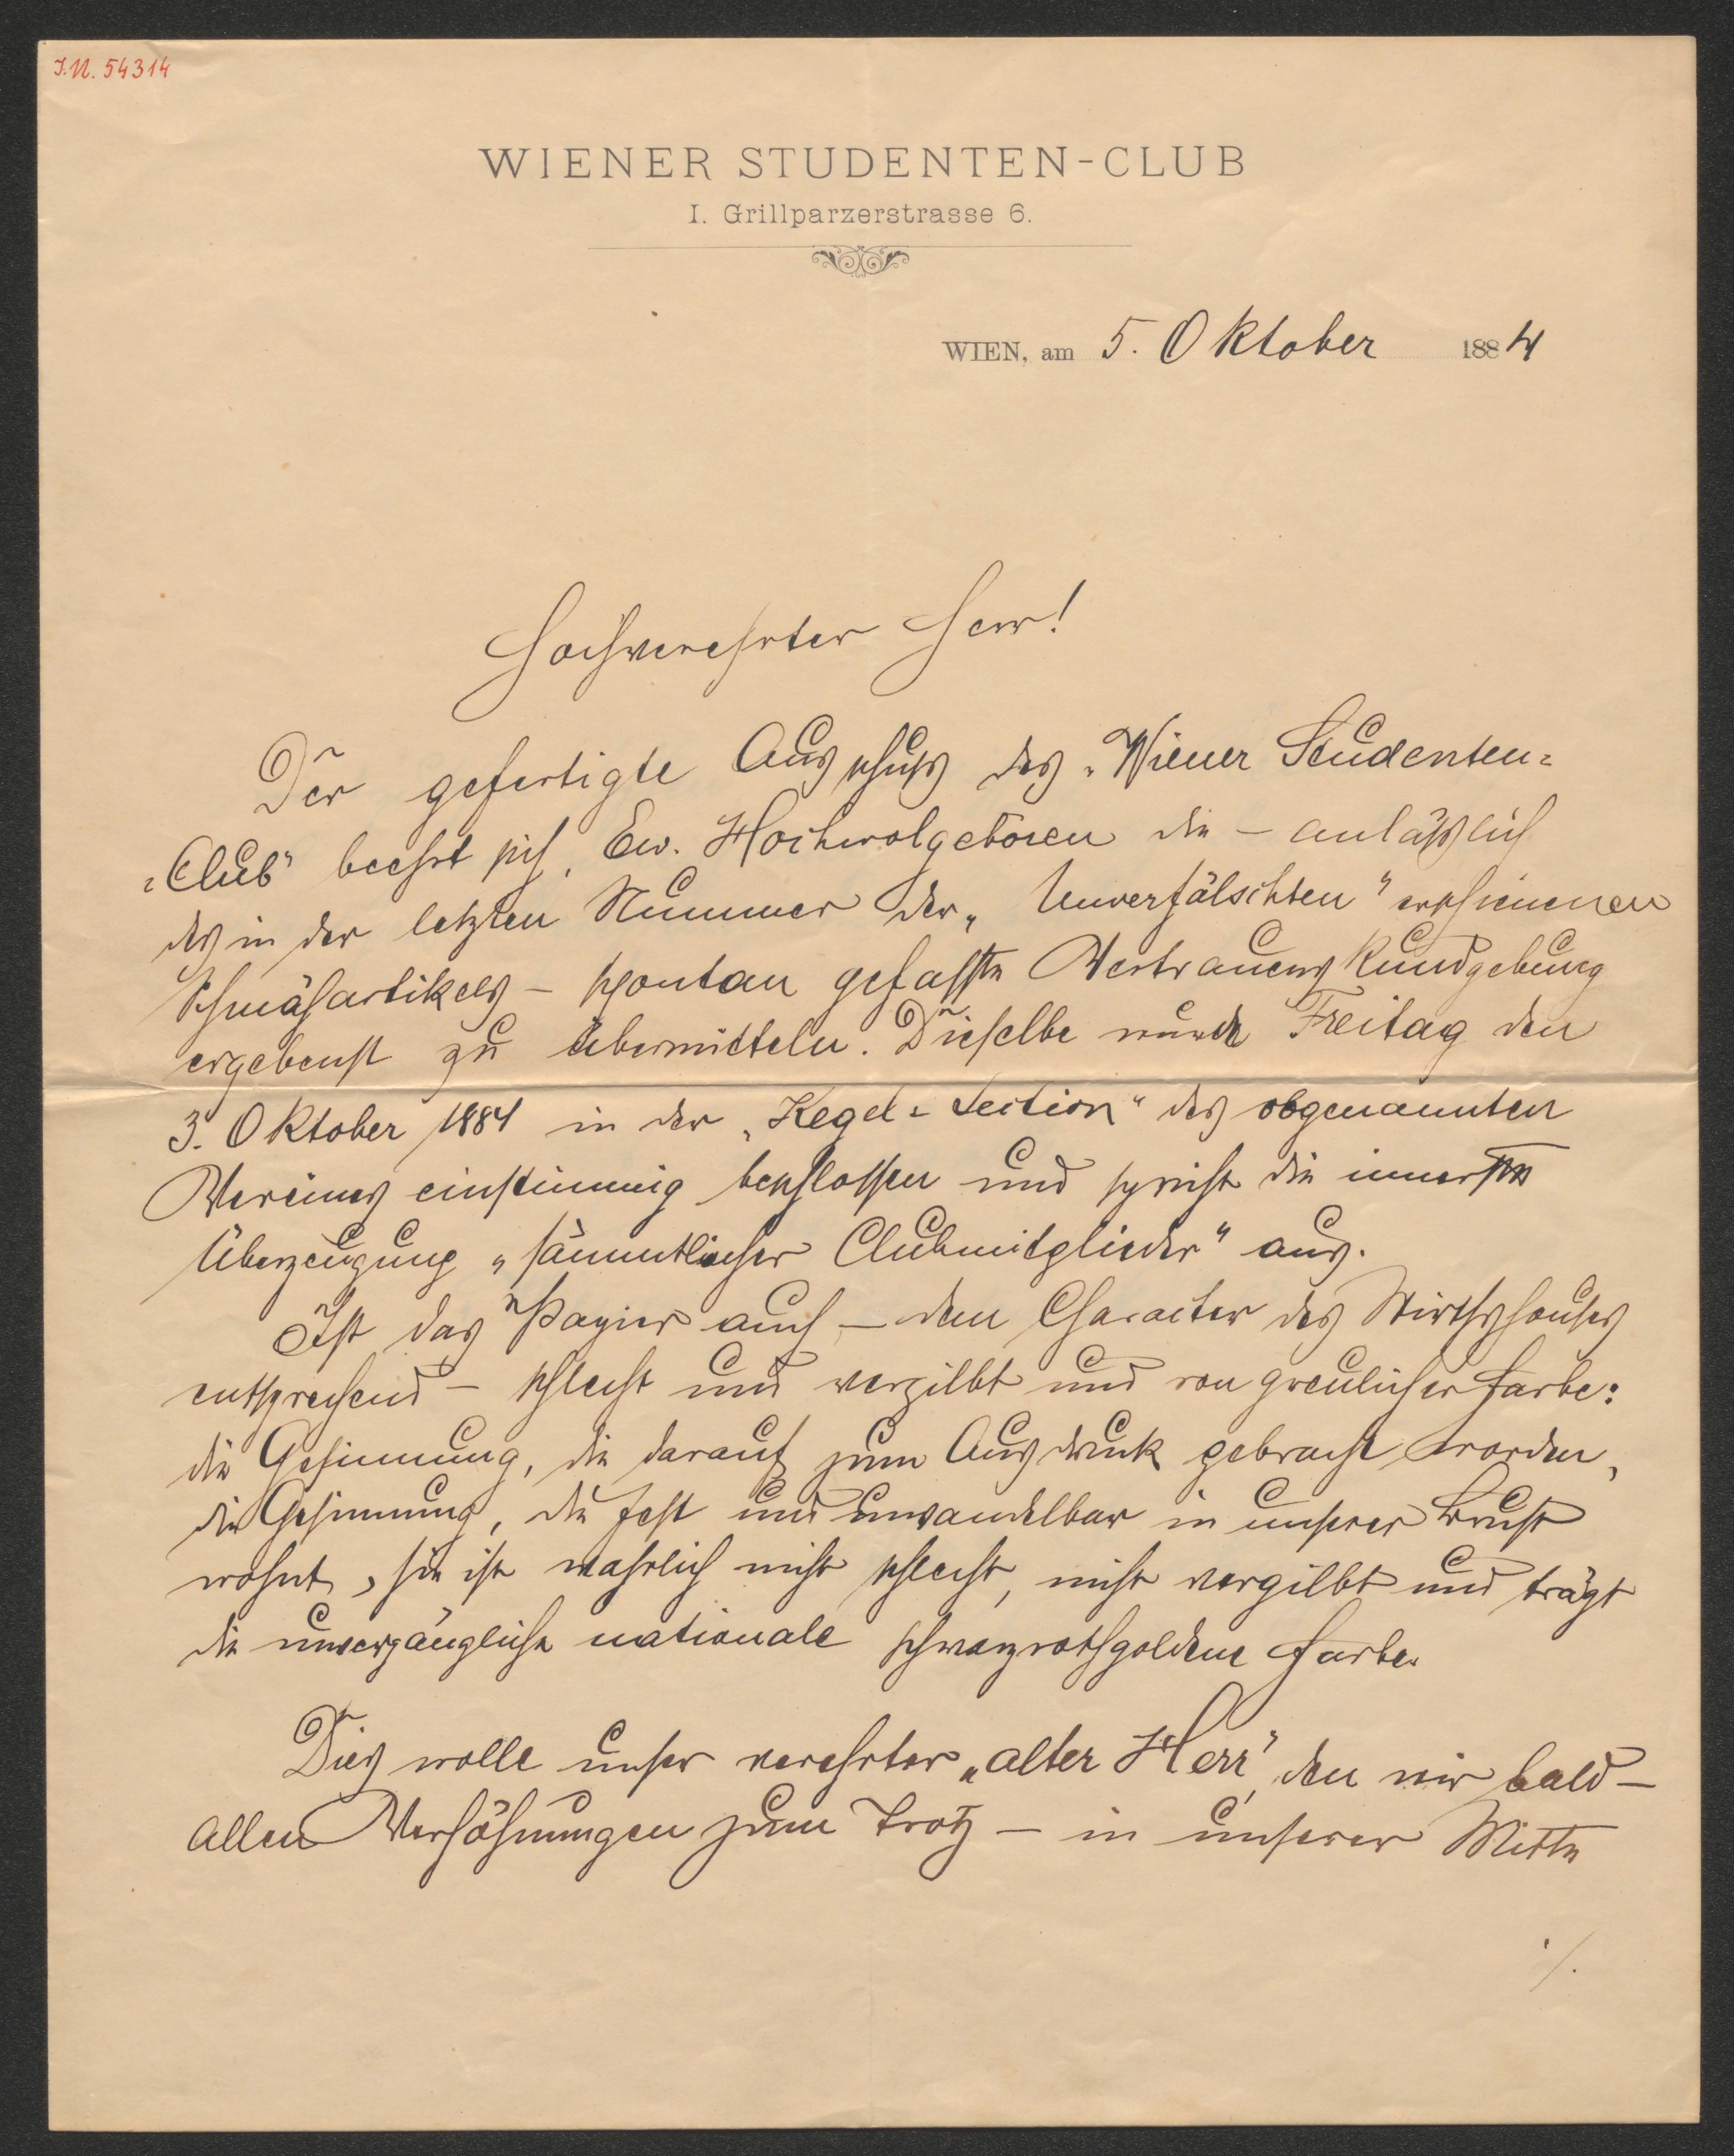 I.N. 54314
WIENER STUDENTEN-CLUB
I. Grillparzerstrasse 6.
WIEN, am 5. Oktober 1884
Hochverehrter Herr!
Der gefertigte Ausschuß des „Wiener Studenten=
„Club“ beehrt sich, Ew. Hochwolgeboren die – anläßlich
des in der letzten Nummer der „Unverfälschten“ erschienenen
Schmähartikels – spontan gefasste Vertrauens Kundgebung
ergebenst zu übermitteln. Dieselbe wurde Freitag den
3. Oktober 1884 in der „Kegel=Section“ des obgenannten
Vereines einstimmig beschlossen und spricht die innersten
Überzeugung „sämmtlicher Clubmitglieder“ aus.
Ist das Papier auch – dem Character des Wirthshauses
entsprechend – schlecht und vergilbt und von greulicher Farbe:
die Gesinnung, die darauf zum Ausdruck gebracht worden,
die Gesinnung, die fest und unwandelbar in unserer Brust
wohnt, sie ist wahrlich nicht schlecht, nicht vergilbt und trägt
die unvergängliche nationale schwarzrothgoldene Farbe.
Dies wolle unser verehrter „alter Herr“, den wir bald –
allen Verhöhnungen zum Trotz – in unserer Mitte
./.